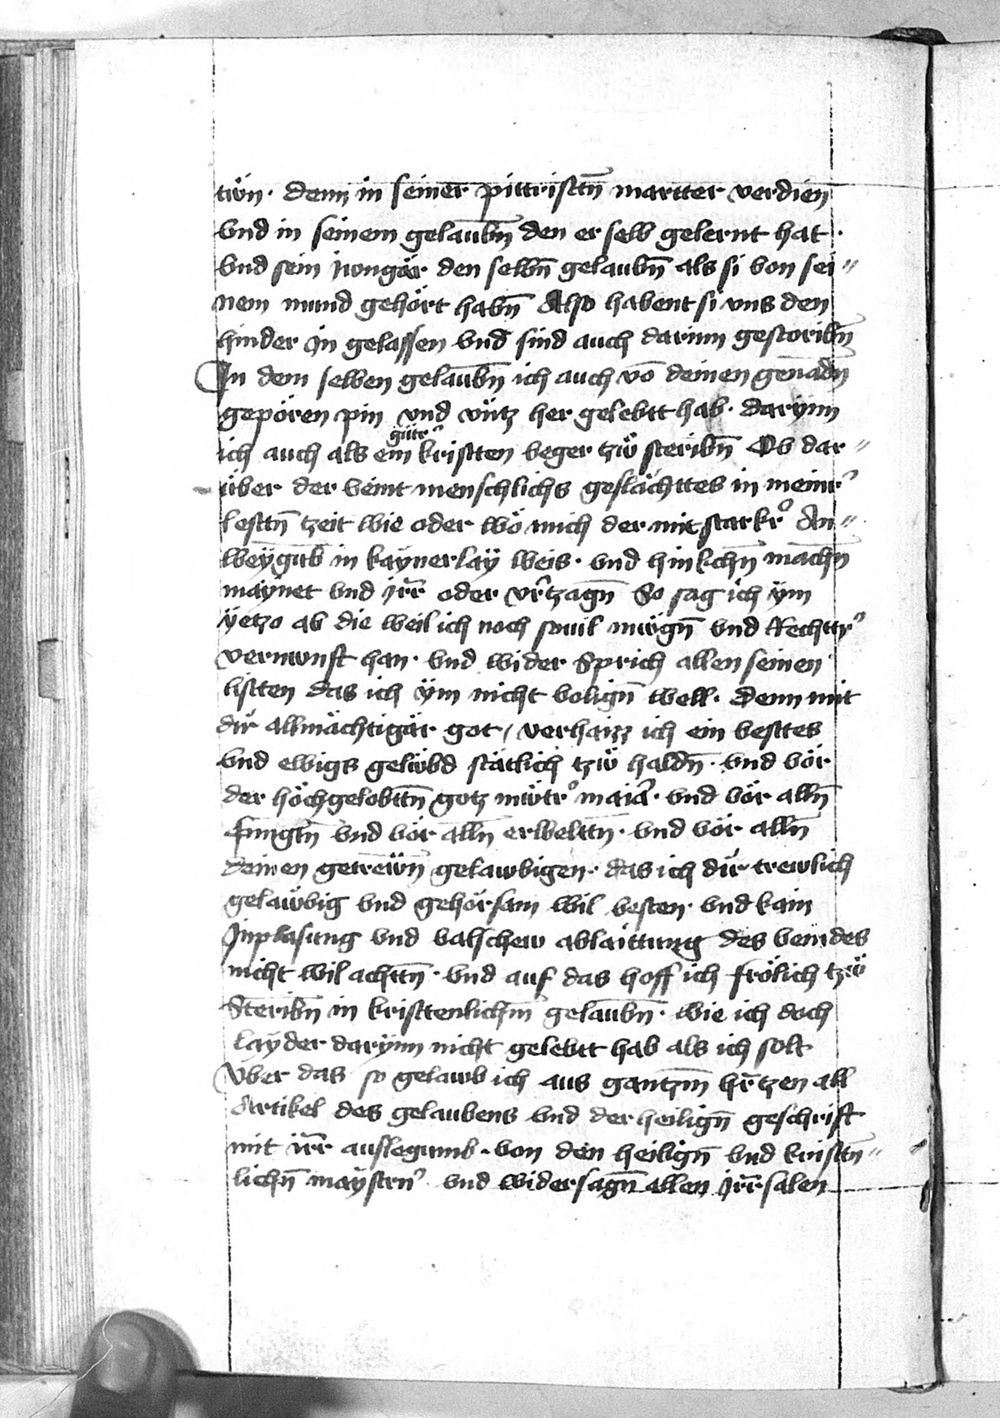 twͤn · denn in seiner̄ pittristtn̄ martter verdien̄
vnd in seinem gelaubn̄ den er selb gelernt hat ·
vnd sein iungär den selbn̄ gelaubn̄ als si von sei〃
nem mund gehört habn̄ Also habent si vns den
hinder In gelassen vnd sind auch darinn gestoribn̄
In dem selben gelaubn̄ ich auch vō deinen genadn̄
gepören pin vnd vntz her gelebtt hab · darynn
ich auch als ein guͤtr᾿ kristten beger tzwͦ steribn̄ Ob dar〃
über der veint menschlichs geslächttes in meinr᾿
lesttn̄ tzeit wie oder wo mich der mit starkr᾿ An〃
weygūb in kaynerlay weis · vnd hinkchn̄ machn̄
maynet vnd irr̄ oder vr̄tzagn̄ So sag ich ÿm
ÿetzo ab die weil ich noch souil mügn̄ vnd Rechttr᾿
vernunft han · vnd wider Sprich allen seinen
listten das ich ÿm nicht volign̄ well · denn mit
dir allmächtigär got / verhaizz ich ein vesttes
vnd ewigs gelübd stätlich tzwͦ haldn̄ · vnd vör
der höchgelobttn̄ gotz muͤtr᾿ maiā · vnd vör alln̄
Jungtn̄ vnd vör alln̄ erweltn̄ · vnd vör alln̄
deinen getrewn̄ gelawbigen · das ich dir trewlich
gelawbig vnd gehörsam wil besten · vnd kain
Inplasung vnd valschew ablaittung des veindes
nicht wil achttn̄ · vnd auf das hoff ich frölich tzwͦ
Steribn̄ in kristtenlichm̄ gelaubn̄ · wie ich doch
layder darynn nicht gelebtt hab als ich solt
Vber das so gelawb ich aus gantzm̄ hr̄tzen all
Artikel des gelaubens vnd der heilign̄ geschrift
mit irr̄ auslegumb · von den heilign̄ vnd kristtn̄〃
lichn̄ maystrn᾿ vnd widersagn̄ allen Irr̄salen